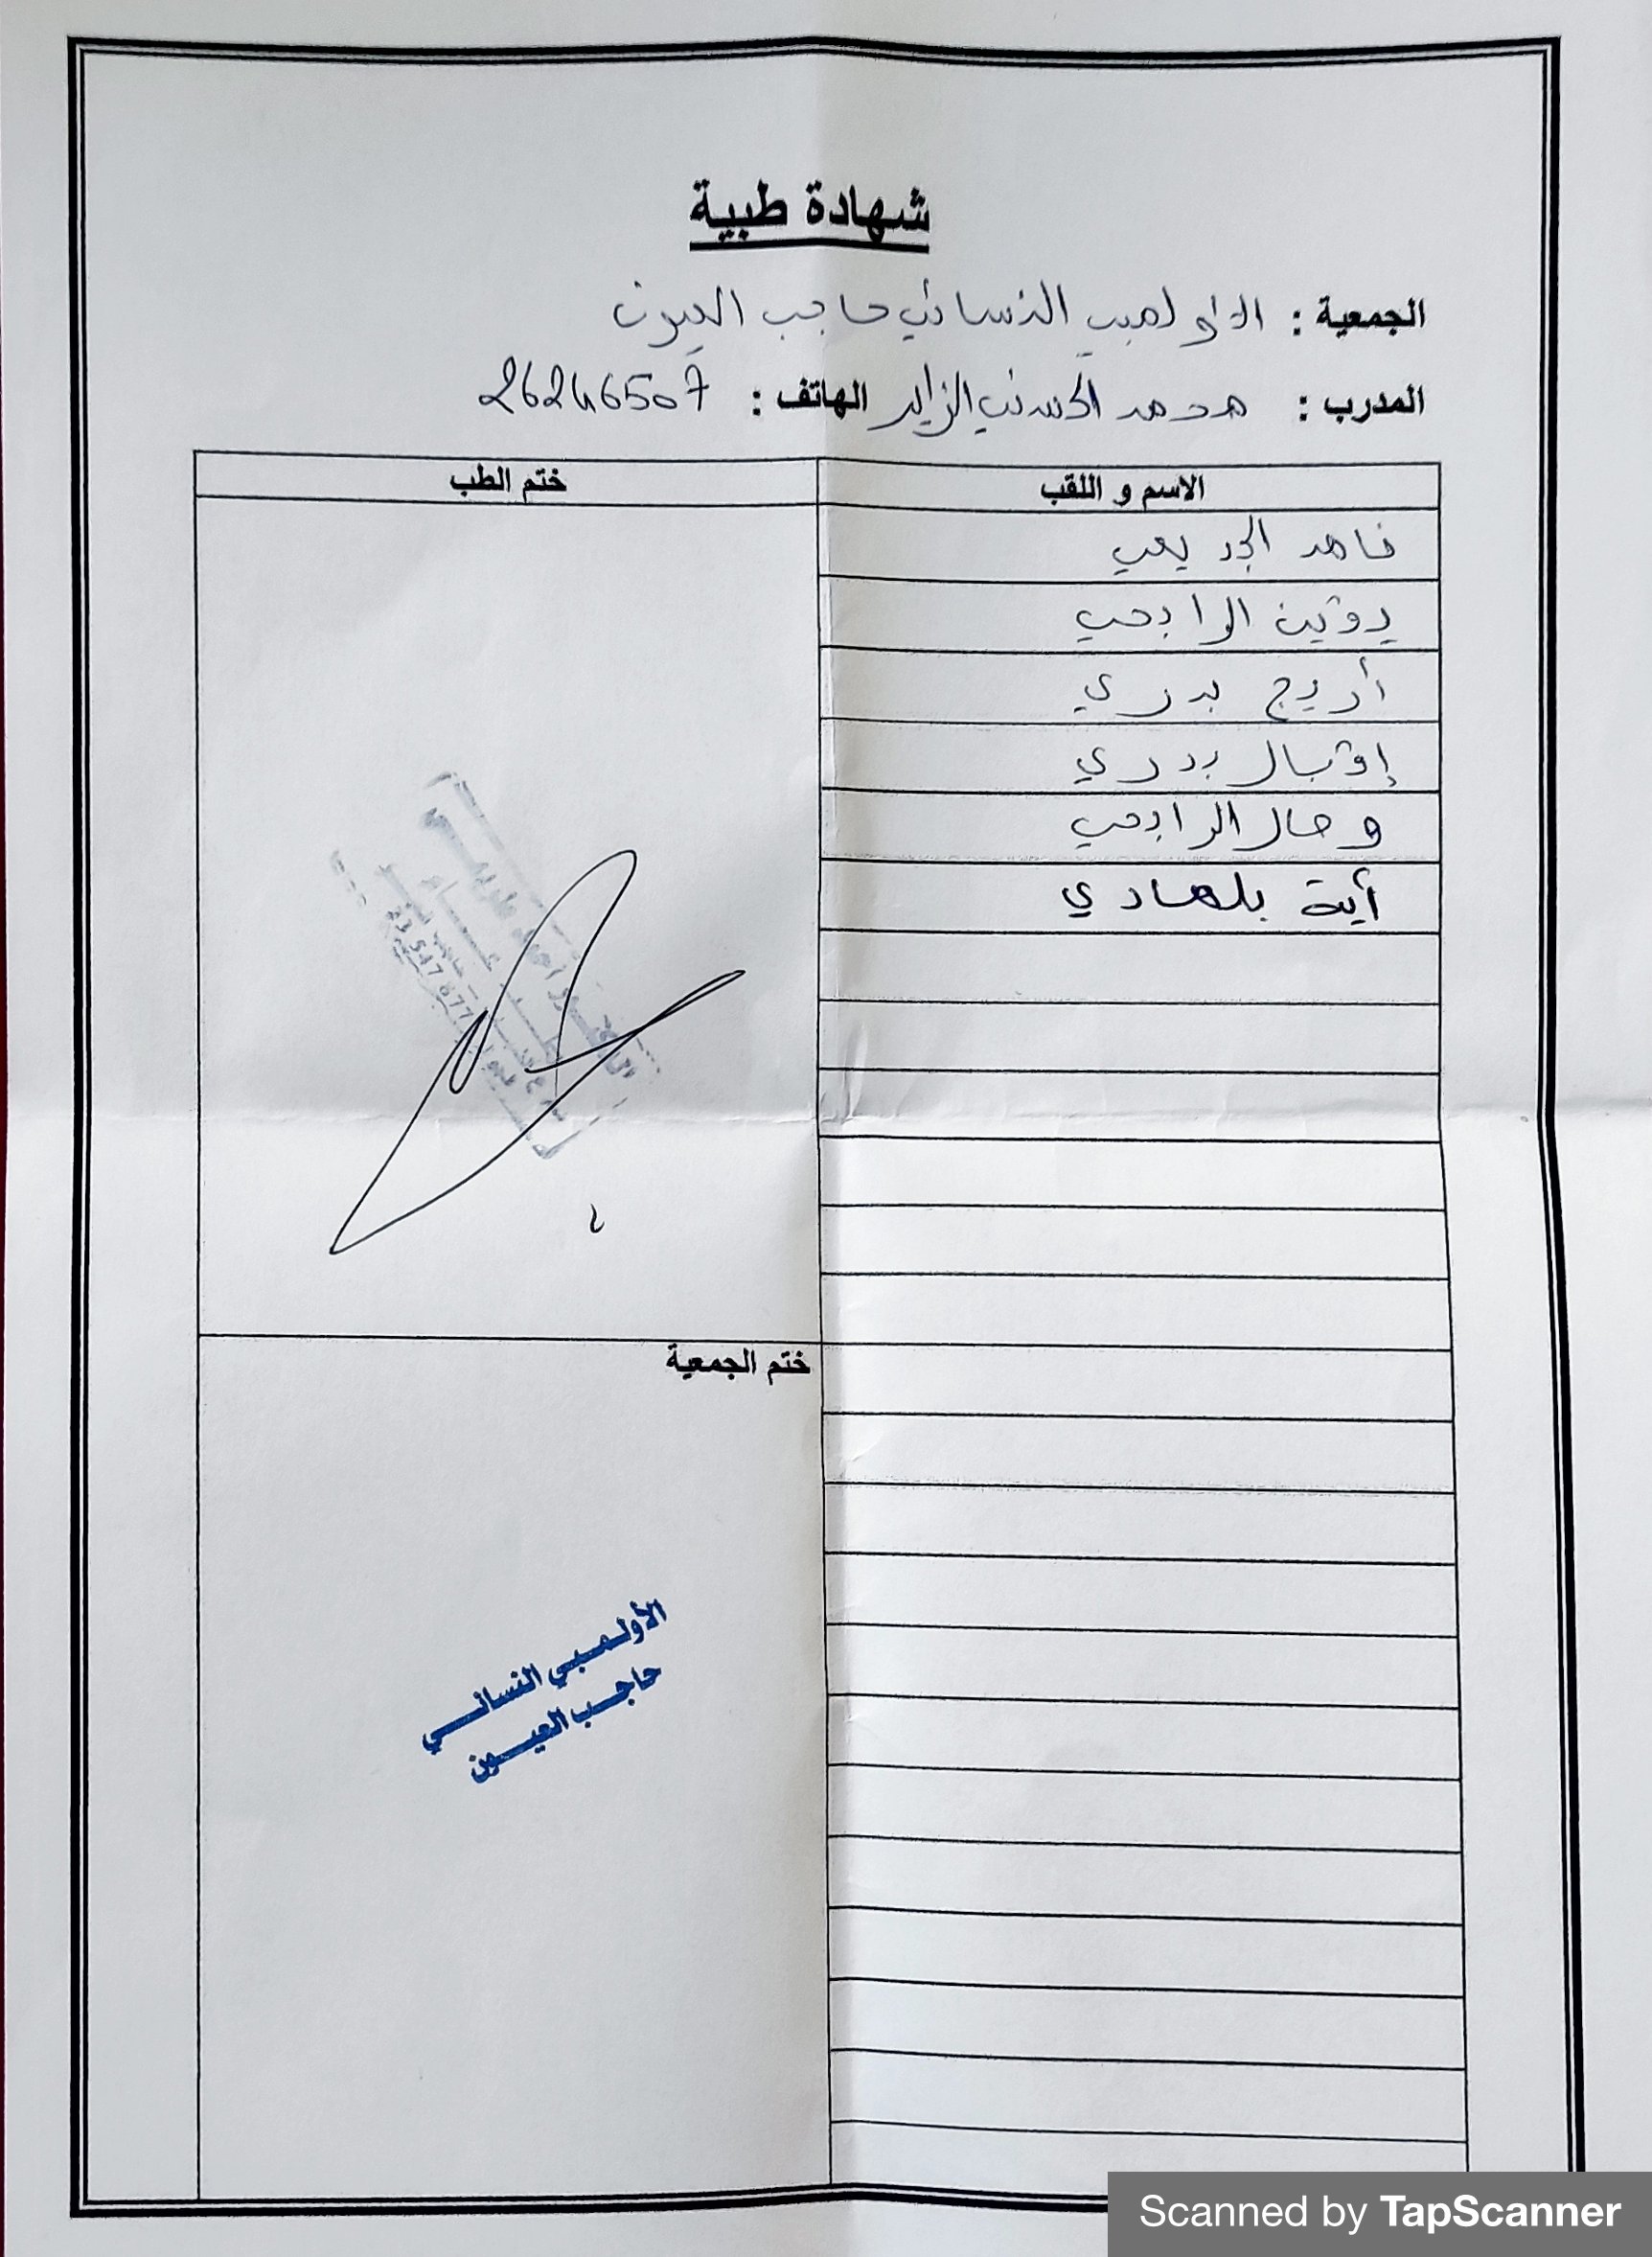 شهادة طبية
الجمعية : الاولمبي النسائي حاجب العيون
المدرب : محمد الحسني الزايد الهاتف : 26246507
الاسم و اللقب ختم الطب
ناهد الجديعي
يقين الرابحي
أريج بدري
إقبال بدري
وصال الرابحي
آية بلهادي
23 547 677
ختم الجمعية
الأولمبي النسائي
حاجب العيون
Scanned by TapScanner